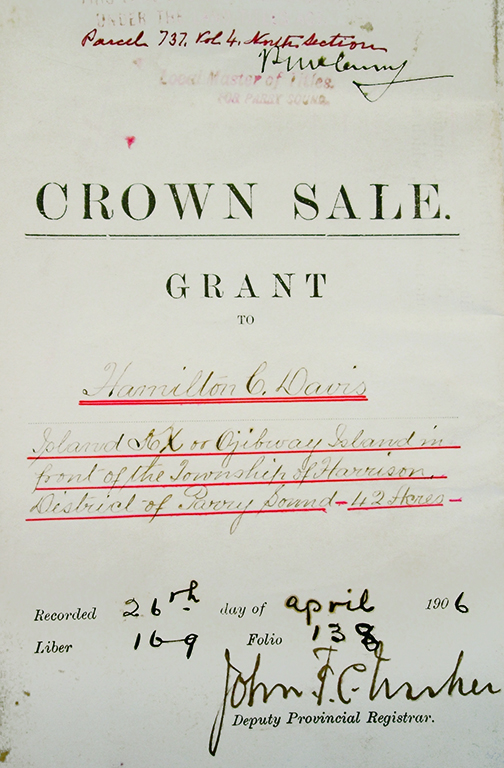 UNDER THE
Parcel 737. Vol 4. North Section
Local Master of Titles.
FOR PARRY SOUND.
CROWN SALE.
GRANT
TO
Hamilton C. Davis
Island X or Ojibway Island in
front of the Township of Harrison,
District of Parry Sound - 42 Acres -
Recorded 26th day of april 1906
Liber 169 Folio 138
John F. C.
Deputy Provincial Registrar.